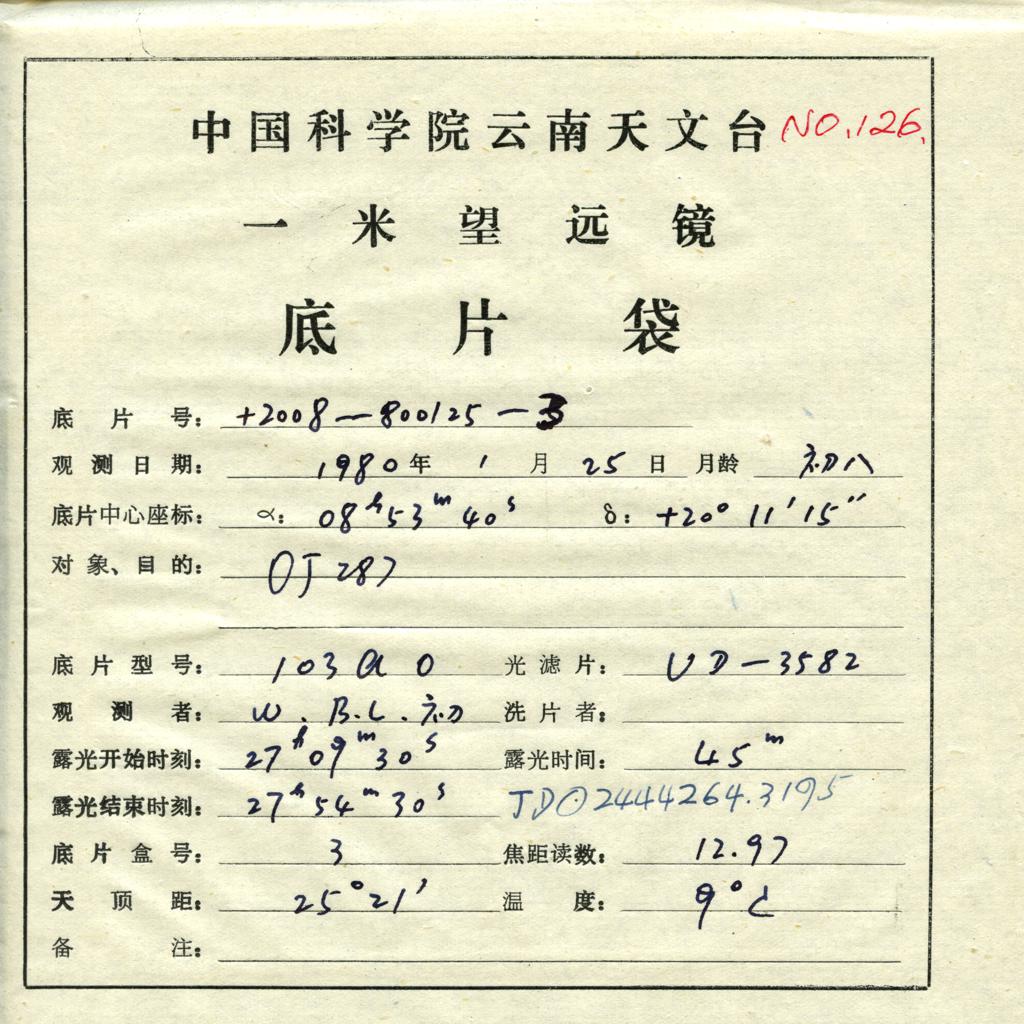 中国科学院云南天文台 NO.126.
一米望远镜
底片袋
底片号: +2008-800125-3
观测日期: 1980年 1月 25日 月龄 初八
底片中心座标: α: 08ʰ53ᵐ40ˢ δ: +20°11′15″
对象、目的: OJ 287
底片型号: 103aO 光滤片: UD-3582
观测者: W.B.L.初 洗片者:
露光开始时刻: 27ʰ09ᵐ30ˢ 露光时间: 45ᵐ
露光结束时刻: 27ʰ54ᵐ30ˢ JD⊙2444264.3195
底片盒号: 3 焦距读数: 12.97
天顶距: 25°21′ 温度: 9°C
备注: